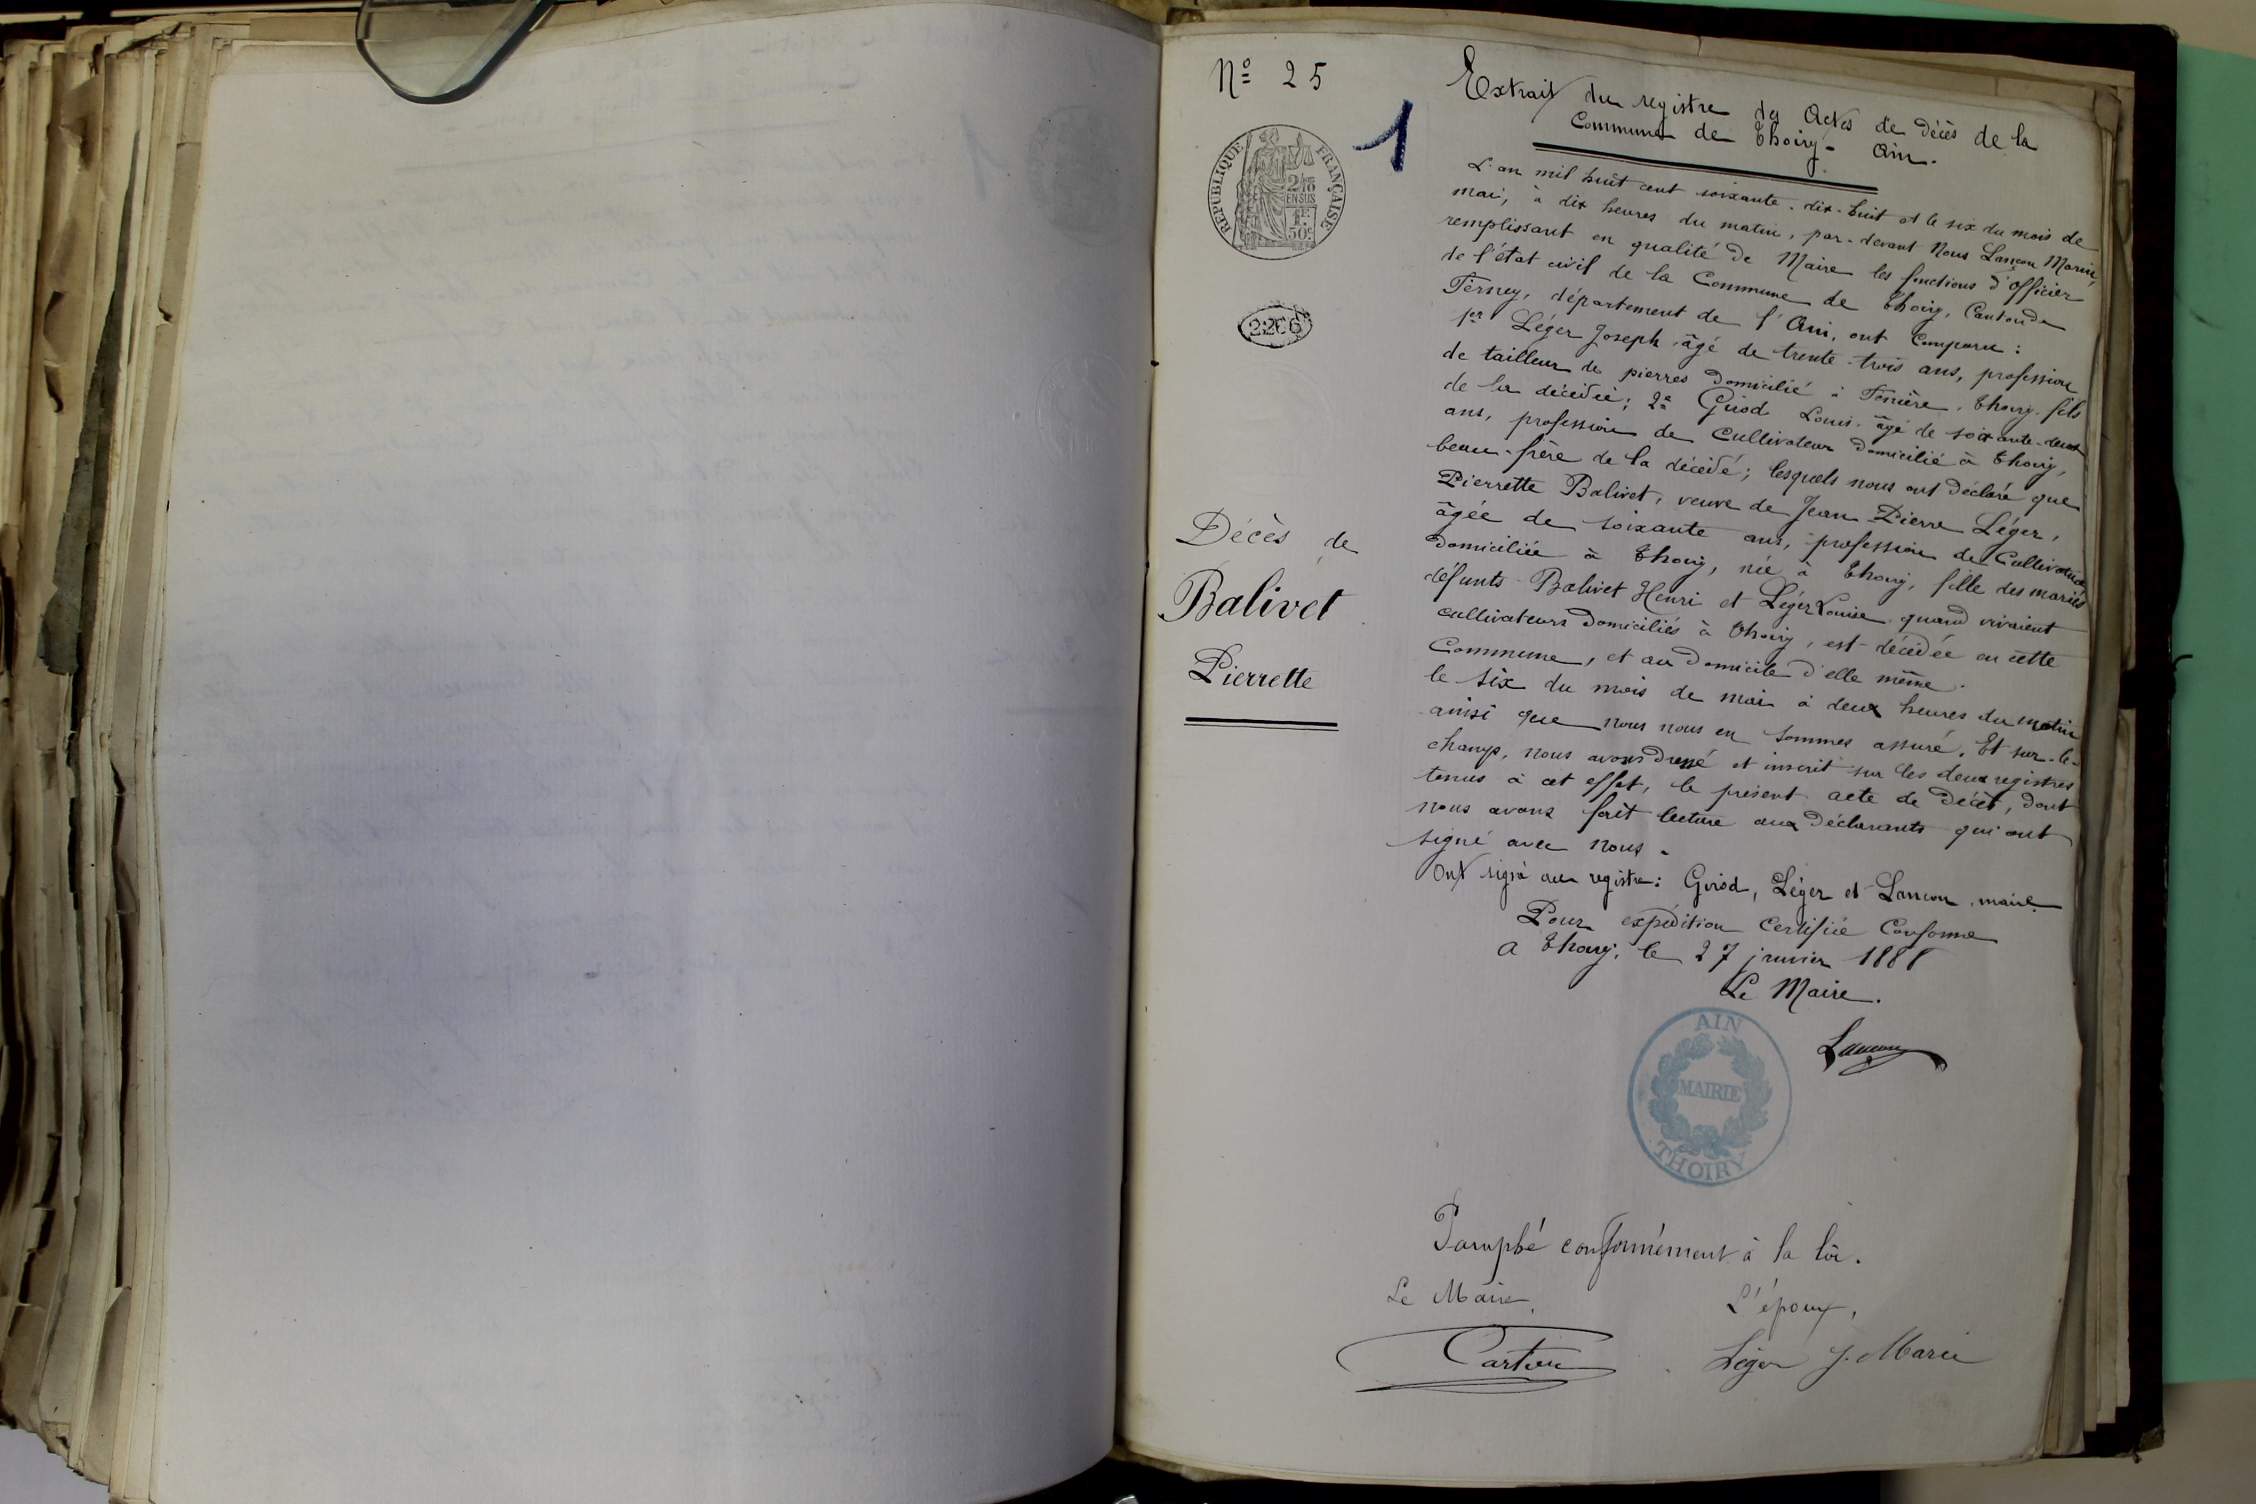 Nº 25
1
Extrait du registre des Actes de décès de la
Commune de Thoiry - Ain.
RÉPUBLIQUE FRANÇAISE
2/10
EN SUS
1F.
50c
2266
L'an mil huit cent soixante-dix-huit et le six du mois de
mai, à dix heures du matin, par-devant Nous Lançon Marin,
remplissant en qualité de Maire les fonctions d'Officier
de l'état civil de la Commune de Thoiry, Canton de
Ferney, département de l'Ain, ont Comparu :
1er Léger Joseph, âgé de trente-trois ans, profession
de tailleur de pierres domicilié à Fenière, Thoiry, fils
de la décédée; 2e Girod Louis, âgé de soixante-deux
ans, profession de Cultivateur domicilié à Thoiry,
beau-frère de la décédé; lesquels nous ont déclaré que
Pierrette Balivet, veuve de Jean Pierre Léger,
âgée de soixante ans, profession de Cultivatrice
domiciliée à Thoiry, née à Thoiry, fille des mariés
défunts Balivet Henri et Léger Louise quand vivaient
cultivateurs domiciliés à Thoiry, est décédée en cette
Commune, et au domicile d'elle même.
le six du mois de mai à deux heures du matin
ainsi que nous nous en sommes assuré. Et sur-le-
champ, nous avons dressé et inscrit sur les deux registres
tenus à cet effet, le présent acte de décès, dont
nous avons fait lecture aux déclarants qui ont
signé avec nous.
Ont signé au registre : Girod, Léger et Lançon, maire.
Pour expédition Certifiée Conforme
A Thoiry, le 27 janvier 1888
Le Maire.
Lançon
Décès de
Balivet
Pierrette
AIN
MAIRIE
THOIRY
Paraphé conformément à la loi.
Le Maire, L'époux,
Léger J. Marie